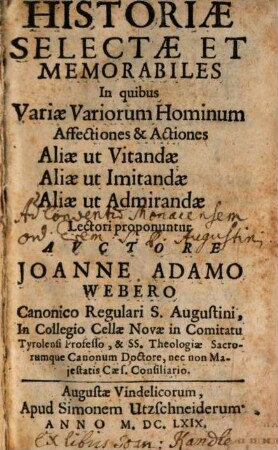 HISTORIÆ
SELECTÆ ET
MEMORABILES
In quibus
Variæ Variorum Hominum
Affectiones & Actiones
Aliæ ut Vitandæ
Aliæ ut Imitandæ
Aliæ ut Admirandæ
Ad Conventum Monacensem
Lectori proponuntur
Ord. Erem. S. P. Augustini
AVCTORE
JOANNE ADAMO
WEBERO
Canonico Regulari S. Augustini,
In Collegio Cellæ Novæ in Comitatu
Tyrolensi Professo, & SS. Theologiæ Sacro-
rumque Canonum Doctore, nec non Ma-
jestatis Cæs. Consiliario.
Augustæ Vindelicorum,
Apud Simonem Utzschneiderum
ANNO M. DC. LXIX.
Ex libris Joan: Kandle